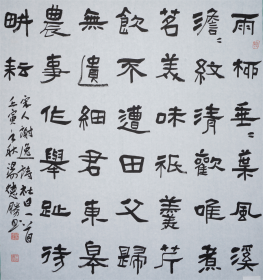 雨柳垂〻葉風溪
澹〻紋清歡唯煮
茗美味祇羹芹
飲不遭田父歸
無遺細君東皋
農事作舉趾待
畊耘
宋人謝逸詩社日一首
壬寅之秋德勝書